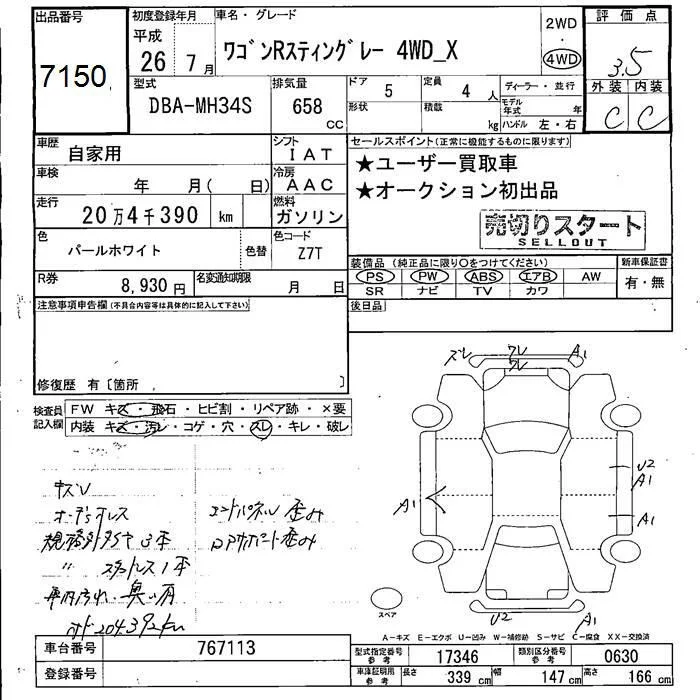 出品番号
7150
初度登録年月
平成
26年 7月
車名・グレード
ワゴンRスティングレー 4WD_X
2WD
・
4WD
評価点
3.5
外装 内装
C C
型式
DBA-MH34S
排気量
658
CC
ドア 5
形状
定員 4 人
積載 kg
ディーラー・並行
モデル年式 年
ハンドル 左・右
車歴
自家用
シフト
IAT
車検
年 月( 日)
冷房
AAC
走行
20万4千390 km
燃料
ガソリン
色
パールホワイト
色替
色コード
Z7T
R券
8,930円
名変通知期限
月 日
セールスポイント(正常に機能するものに限ります)
★ユーザー買取車
★オークション初出品
売切りスタート
SELLOUT
装備品(純正品に限り○をつけてください)
新車保証書
PS PW ABS エアB AW
有・無
SR ナビ TV カワ
後日品
注意事項申告欄(不具合内容等は具体的に記入して下さい)
修復歴 有〔箇所 〕
検査員記入欄
FW キズ・飛石・ヒビ割・リペア跡・×要
内装 キズ・汚レ・コゲ・穴・スレ・キレ・破レ
キズU
オーディオレス
規格外タイヤ3本
〃 スチールレス1本
車内汚れ・臭い有
オド204392km
エンドパネル歪み
ズレ
ワレ
ワレ
A1
A1
U2
A1
A1
U2
A1
スペア
A−キズ E−エクボ U−凹み W−補修跡 S−サビ C−腐食 XX−交換済
車台番号
767113
登録番号
型式指定番号
参考
17346
類別区分番号
参考
0630
車庫証明用
参考
長さ 339 cm
幅 147 cm
高さ 166 cm